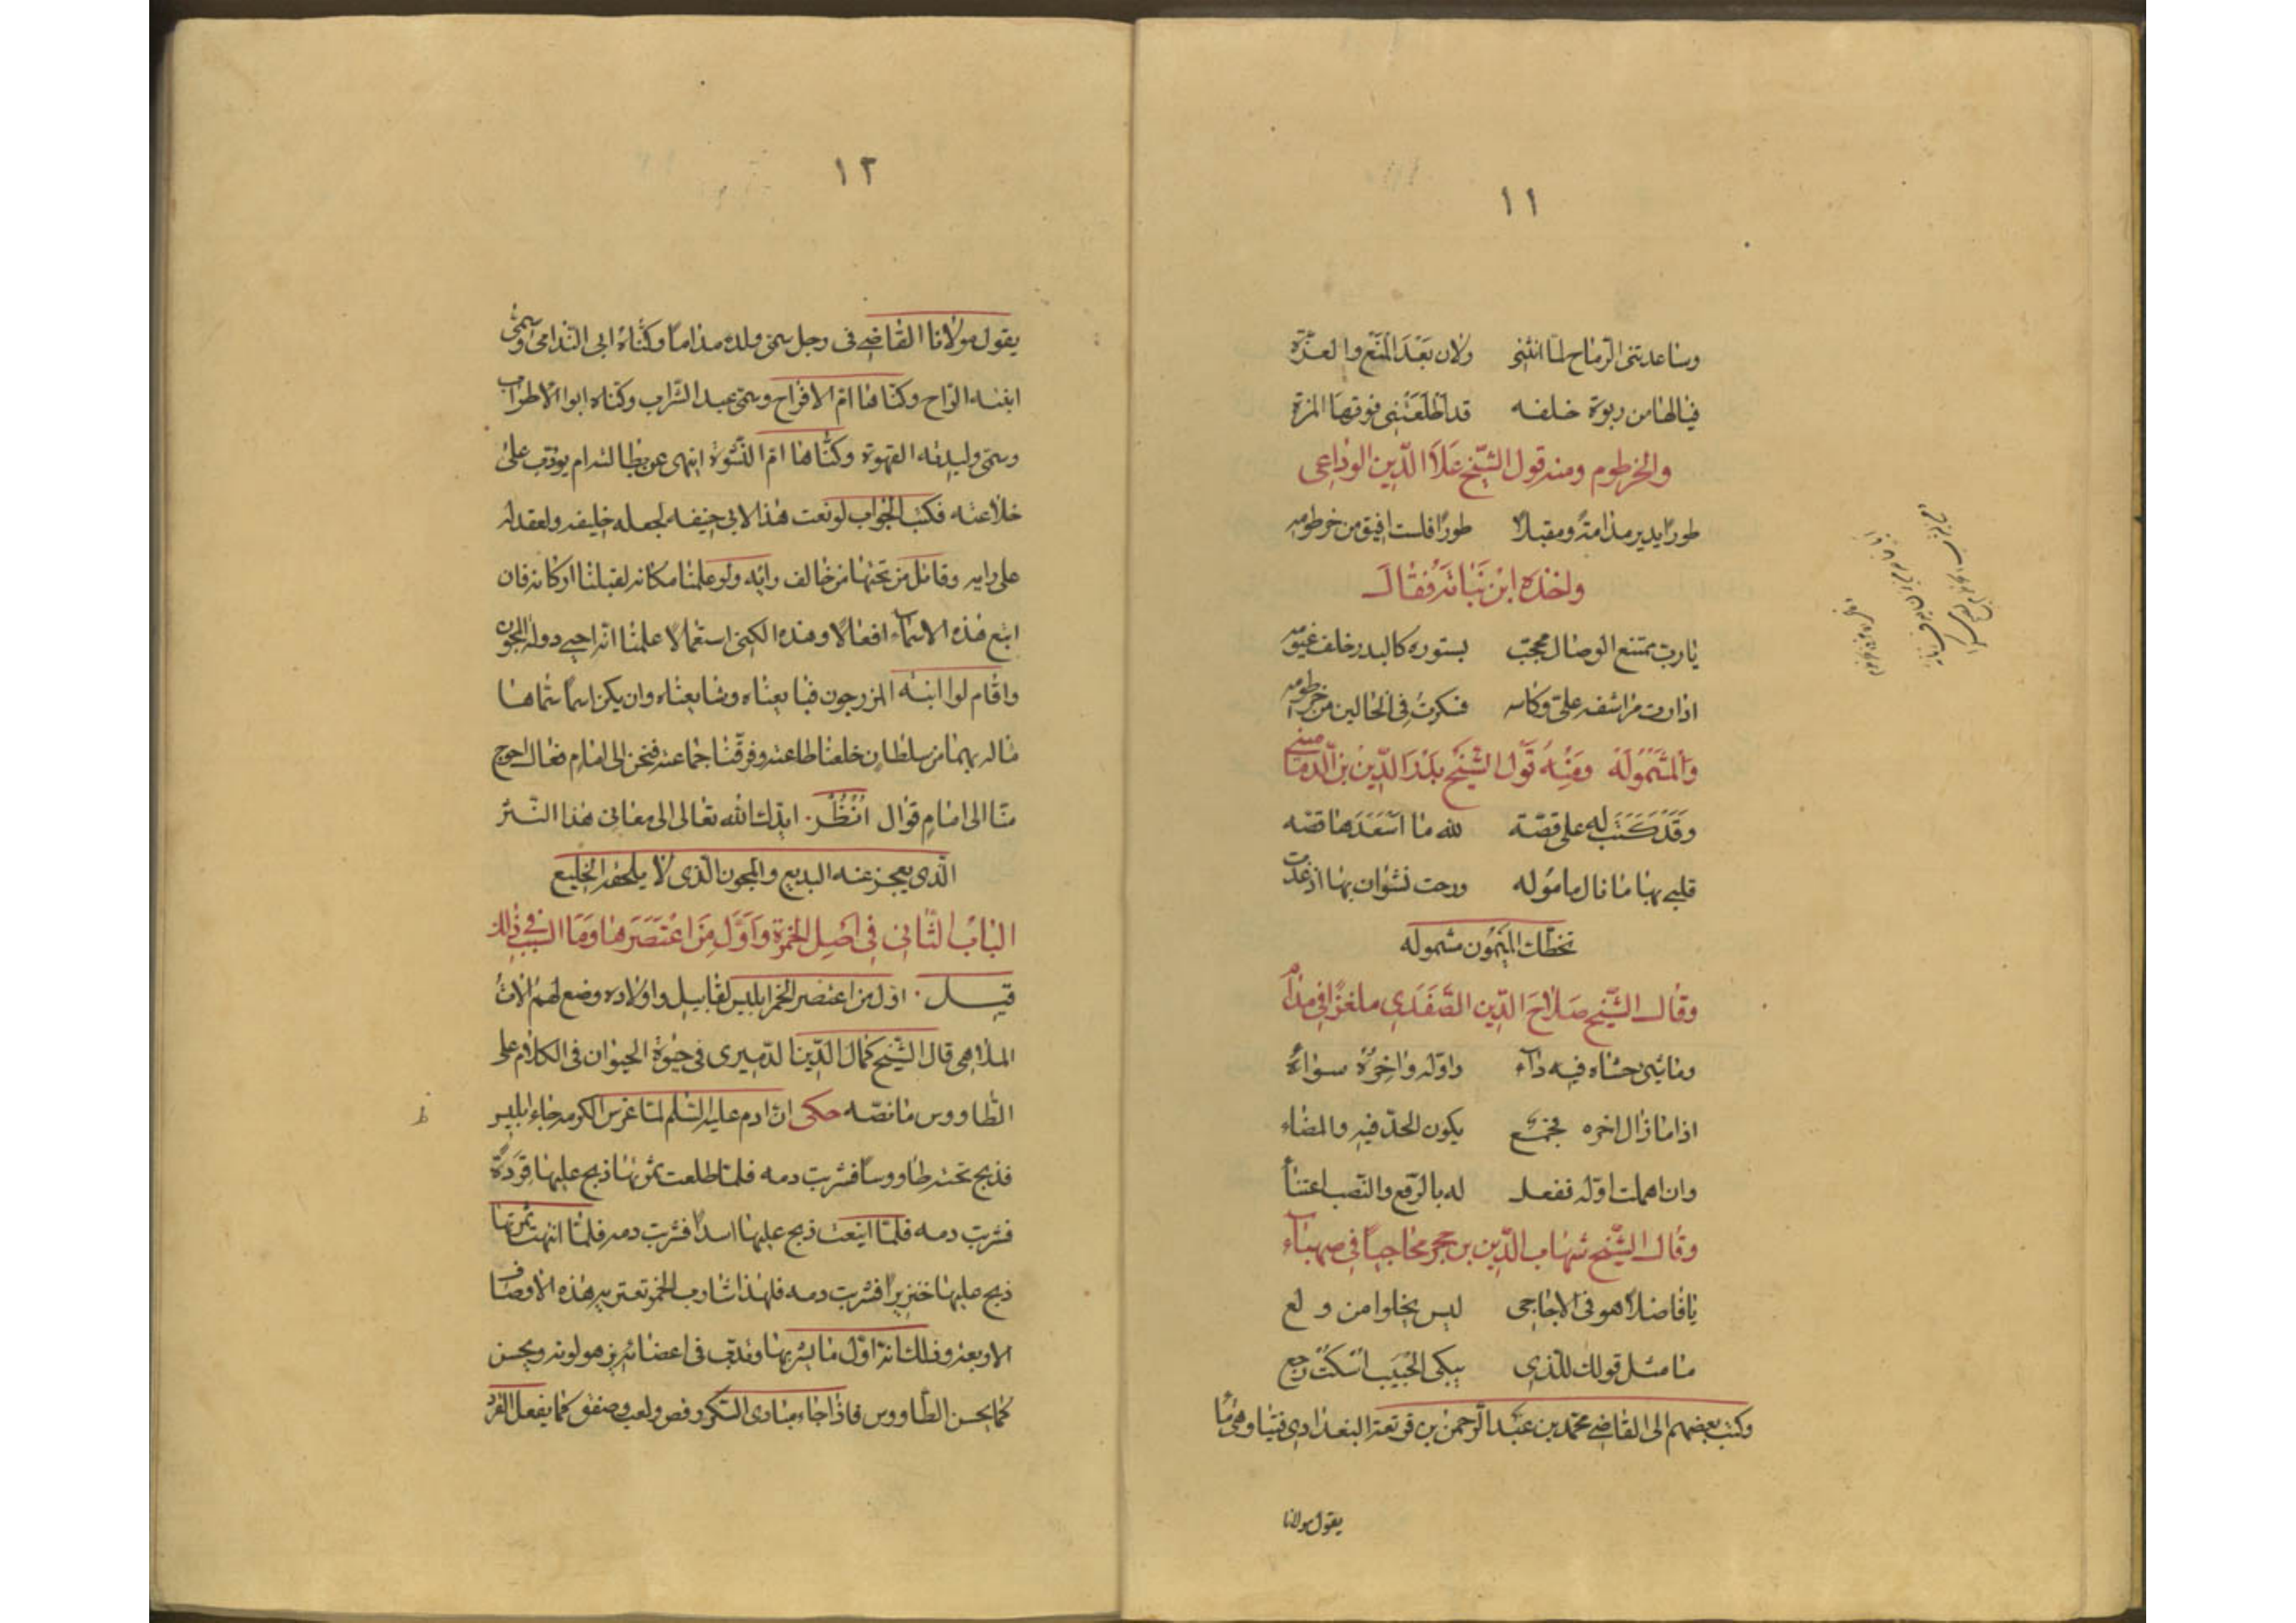 ١١
وساعدتنى الرماح لما انثنى ولان بعد المنع والعزة
فيالها من ربوة خلفه قد اطلعتنى فوقها المزة
والخرطوم ومنه قول الشيخ علاء الدين الوداعى
طورا يدير مدامة ومقبلا طورا فلست افيق من خرطومه
واخذه ابن نباته فقال
يا رب ممتنع الوصال محجب بستوره كالبدر خلف غيومه
اذارت مراشفه على وكاسه فسكرت فى الحالين من خرطومه
والشمولة ومنه قول الشيخ بدر الدين بن الدمامينى
وقد كتب له على قصة لله ما اسعدها قصه
قلبى بها ما نال مامولَه ورحت نشوان بها اذ غدت
بخطك الميمون مشموله
وقال الشيخ صلاح الدين الصفدى ملغزا فى مدام
وما شئ حشاه فيه داء واوله واخره سواء
اذا ما زال اخره فجمع يكون الحد فيه والمضاء
وان اهملت اوله ففعل له بالرفع والنصب اعتناء
وقال الشيخ شهاب الدين بن حجر محاجيا فى صهباء
يا فاضلا هو فى الاحاجى ليس يخلوا من ولع
ما مثل قولك للذى يبكى الحبيب اسكت رجع
وكتب بعضهم الى القاضى محمد بن عبد الرحمن بن قريعة البغدادى فتيا وهى ما
يقول مولانا
١٢
يقول مولانا القاضى فى رجل سمى ولده مداما وكناه ابى الندامى وسمى
ابنته الراح وكناها ام الافراح وسمى عبد الشراب وكناه ابوا الاطراب
وسمى وليدته القهوة وكناها ام النشوة اينهى عن بطالته ام يودب على
خلاعته فكتب الجواب لو نعت هذا لابى حنيفه لجعله خليفه ولعقد له
على رايه وقاتل من تحتها من خالف رايه ولو علمنا مكانه لقبلنا اركانه فان
اتبع هذه الاسماء افعالا وهذه الكنى استعمالا علمنا انه احيى دولة المجون
واقام لوا ابنة الزرجون فبايعناه وشايعناه وان يكن اسما سماها
ماله بهما من سلطان خلعنا طاعته وفرقنا جماعته فنحن الى امام فعال احوج
منا الى امام قوال انظر ايدك الله تعالى الى معانى هذا النثر
الذى يعجز عنه البديع والمجون الذى لا يلحقه الخليع
الباب الثانى فى اصل الخمرة واول من اعتصرها وما السبب فى ذلك
قيل اول من اعتصر الخمر ابليس لقابيل واولاده وضع لهم الات
الملاهى قال الشيخ كمال الدين الدميرى فى حيوة الحيوان فى الكلام على
الطاووس ما نصه حكى ان ادم عليه السلم لما غرس الكرمه جاء ابليس
فذبح تحته طاووسا فشربت دمه فلما طلعت ثمرتها ذبح عليها قردة
فشربت دمه فلما اينعت ذبح عليها اسدا فشربت دمه فلما انتهت ثمرتها
ذبح عليها خنزيرا فشربت دمه فلهذا شارب الخمر تعتريه هذه الاوصاف
الاربعة وذلك انه اول ما يشربها وتدب فى اعضائه يزهو لونه ويحسن
كما يحسن الطاووس فاذا جاء مبادى السكر رقص ولعب وصفق كما يفعل القرد